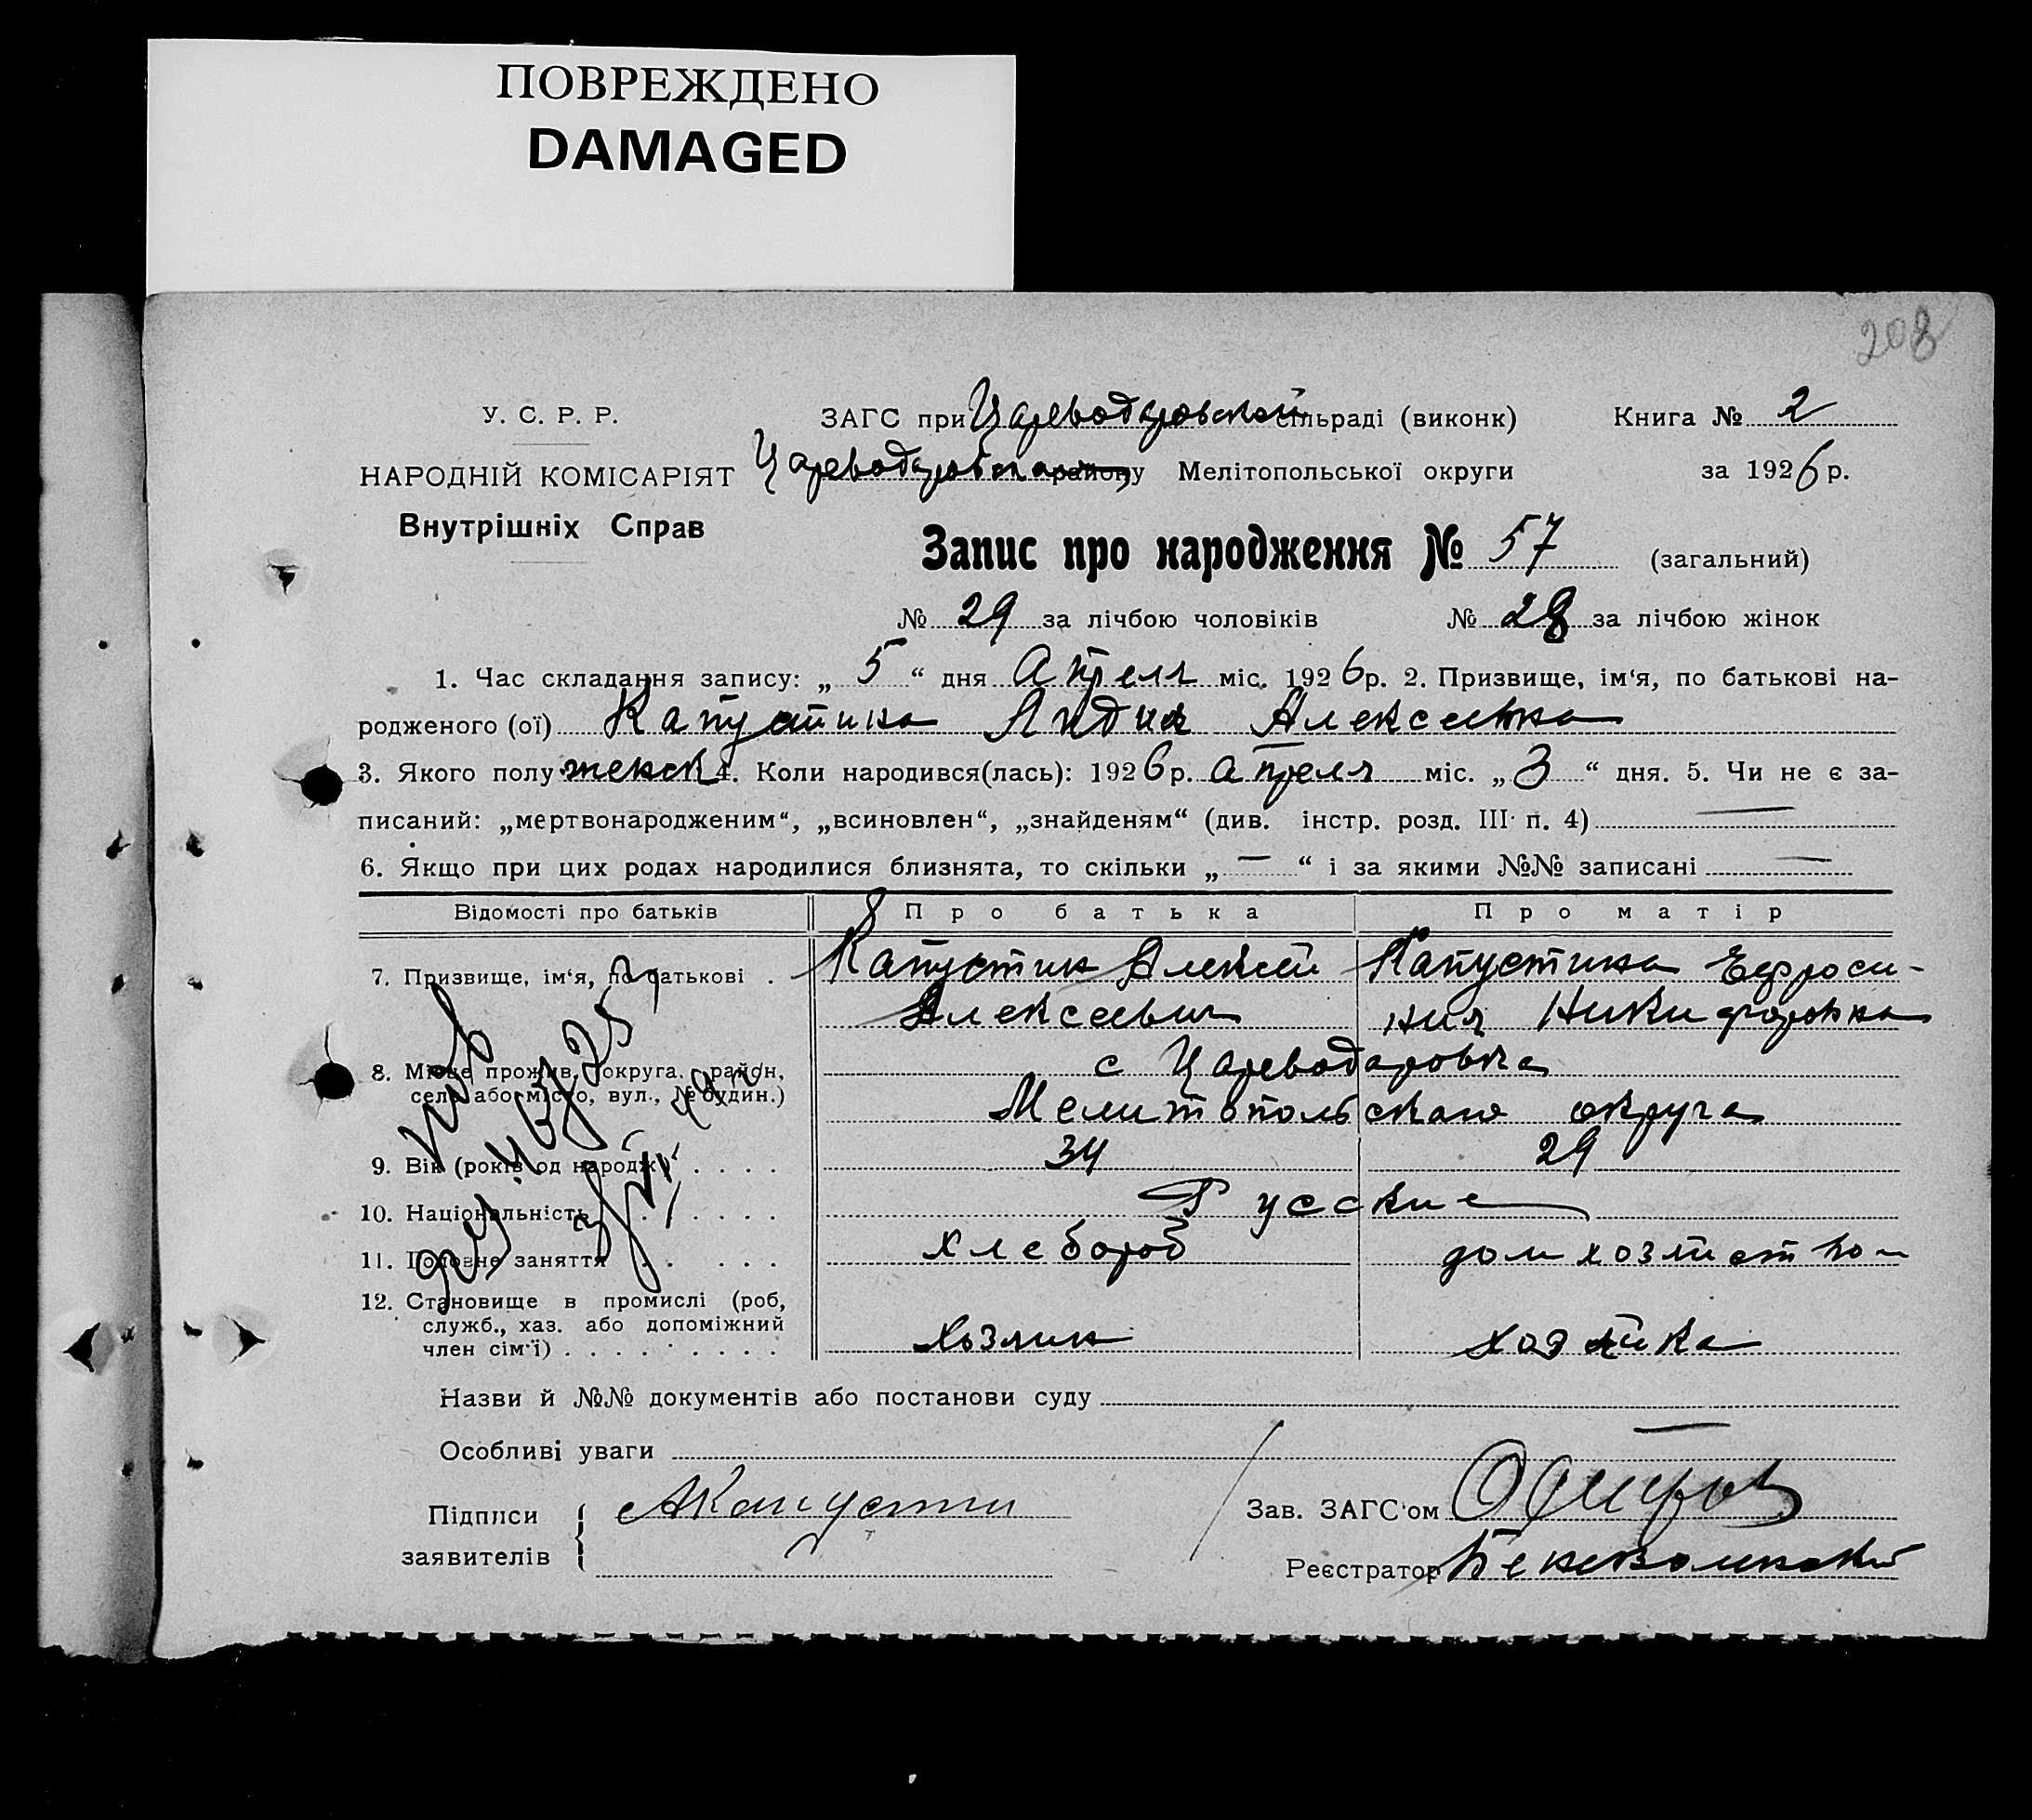 ПОВРЕЖДЕНО
DAMAGED
208
У. С. Р. Р.
НАРОДНІЙ КОМІСАРІЯТ
Внутрішніх Справ
ЗАГС при Цареводаровской сільраді (виконк) Книга № 2
району Мелітопольської округи за 1926 р.
Запис про народження № 57 (загальний)
№ 29 за лічбою чоловіків № 28 за лічбою жінок
1. Час складання запису: „ 5 “ дня Апреля міс. 1926 р. 2. Призвище, ім‘я, по батькові на-
родженого (ої) Капустина Лидия Алексеевна
3. Якого полу женск 4. Коли народився(лась): 1926 р. апреля міс. „ 3 “ дня. 5. Чи не є за-
писаний: „мертвонародженим“, „всиновлен“, „знайденям“ (див. інстр. розд. III п. 4) —
6. Якщо при цих родах народилися близнята, то скільки „ — “ і за якими №№ записані —
Відомості про батьків Про батька Про матір
7. Призвище, ім‘я, по батькові . Капустин Алексей Капустина Ефроси-
Алексеевич ния Никифоровна
8. Місце прожив. (округа, район, с Цареводаровка
село або місто, вул., № будин.) Мелитопольская округа
9. Вік (років од народж.) . . . . 34 29
10. Національність . . . . . Русские
11. Головне заняття . . . . . хлебороб дом хозяйством
12. Становище в промислі (роб,
служб., хаз. або допоміжний
член сім‘ї) . . . . . . . . . Хозяин хозяйка
Назви й №№ документів або постанови суду
Особливі уваги —
Підписи
заявителів { АКапустин
Зав. ЗАГС‘ом
Реєстратор